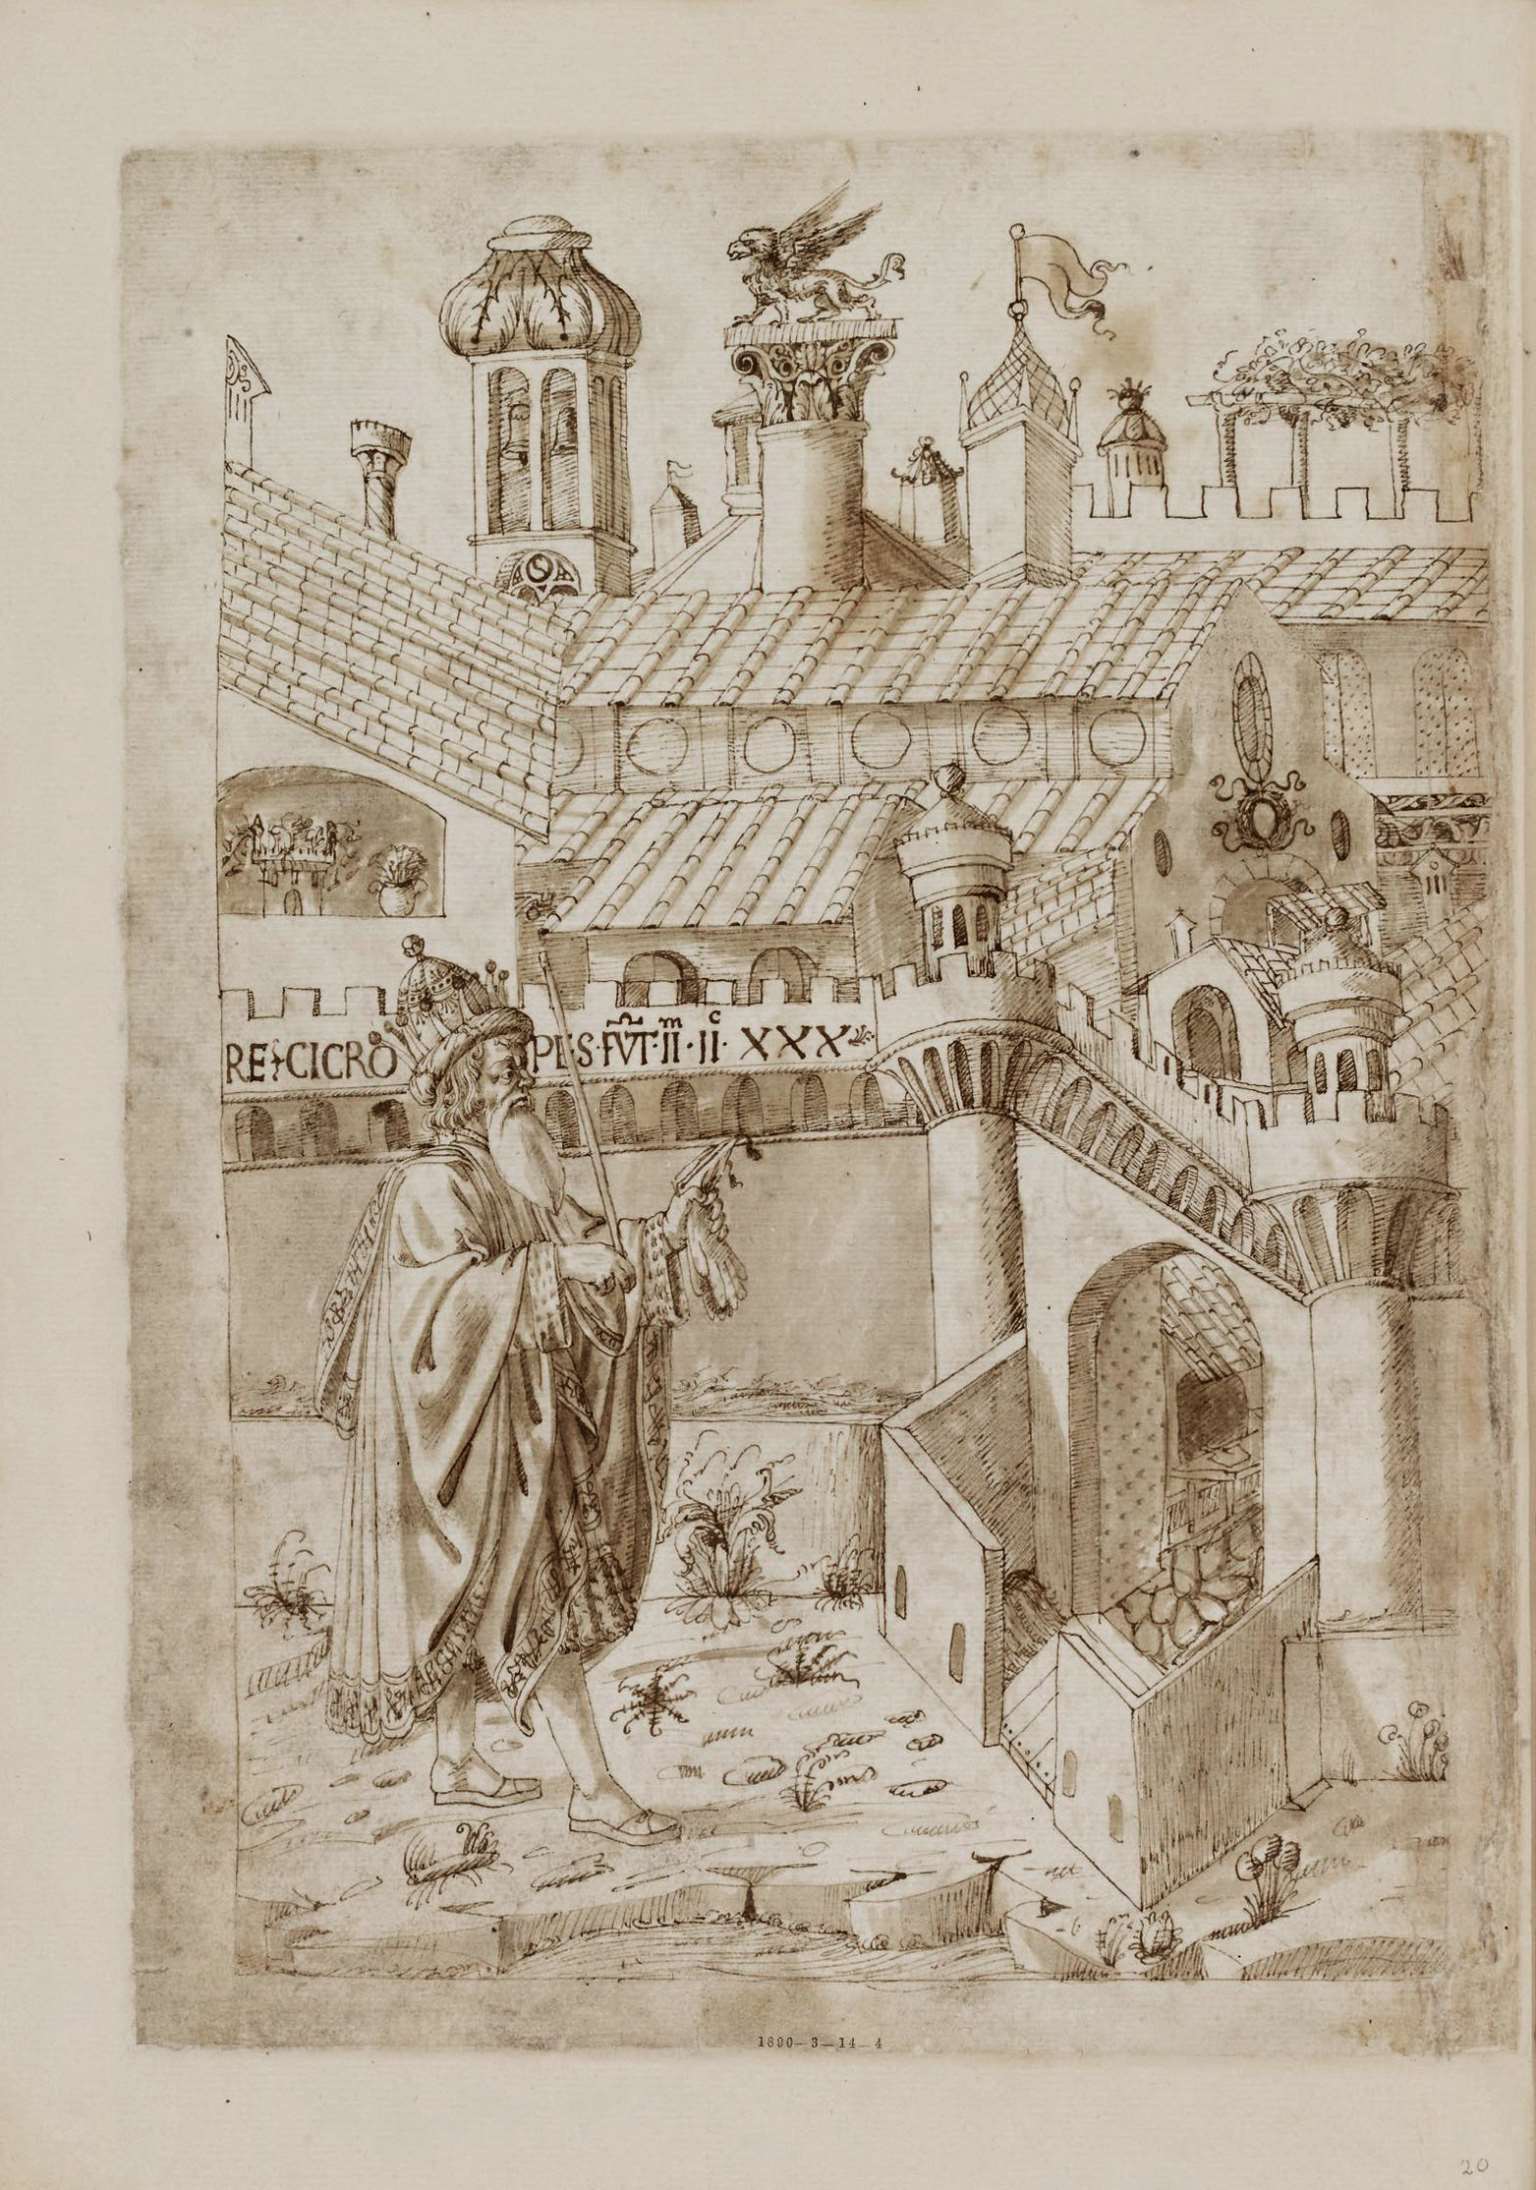 RE CICRO PES·FVT·IIm·IIc·XXX
1890-3-14-4
20